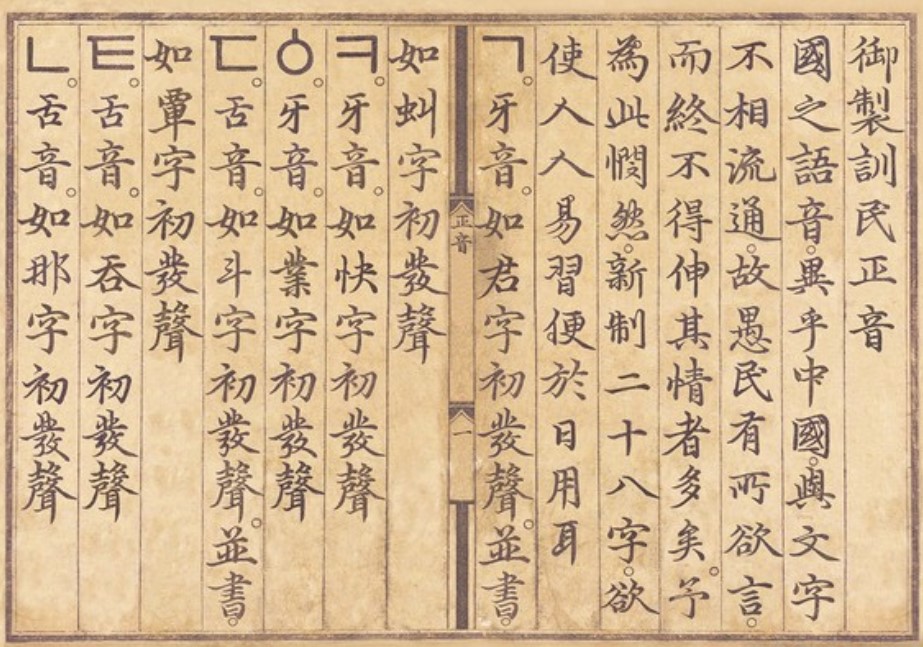 御製訓民正音
國之語音。異乎中國。與文字
不相流通。故愚民有所欲言。
而終不得伸其情者多矣。予
為此憫然。新制二十八字。欲
使人人易習便於日用耳
ㄱ。牙音。如君字初發聲。並書。
正音
一
如虯字初發聲
ㅋ。牙音。如快字初發聲
ㆁ。牙音。如業字初發聲
ㄷ。舌音。如斗字初發聲。並書。
如覃字初發聲
ㅌ。舌音。如呑字初發聲
ㄴ。舌音。如那字初發聲